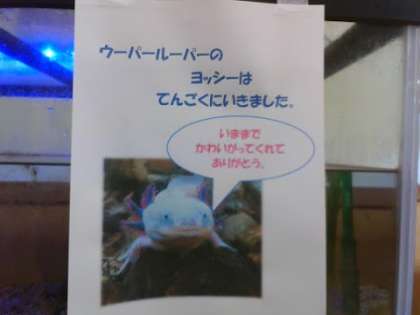 ウーパールーパーの
ヨッシーは
てんごくにいきました。
いままで
かわいがってくれて
ありがとう。